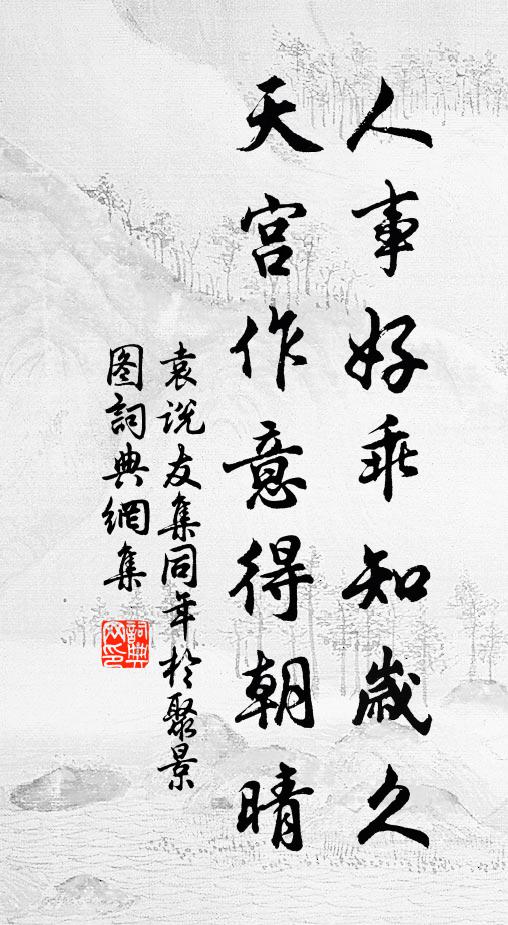 人事好乖知歲久
天宮作意得朝晴
袁说友集同年於聚景
图詞典網集
詞典
网印